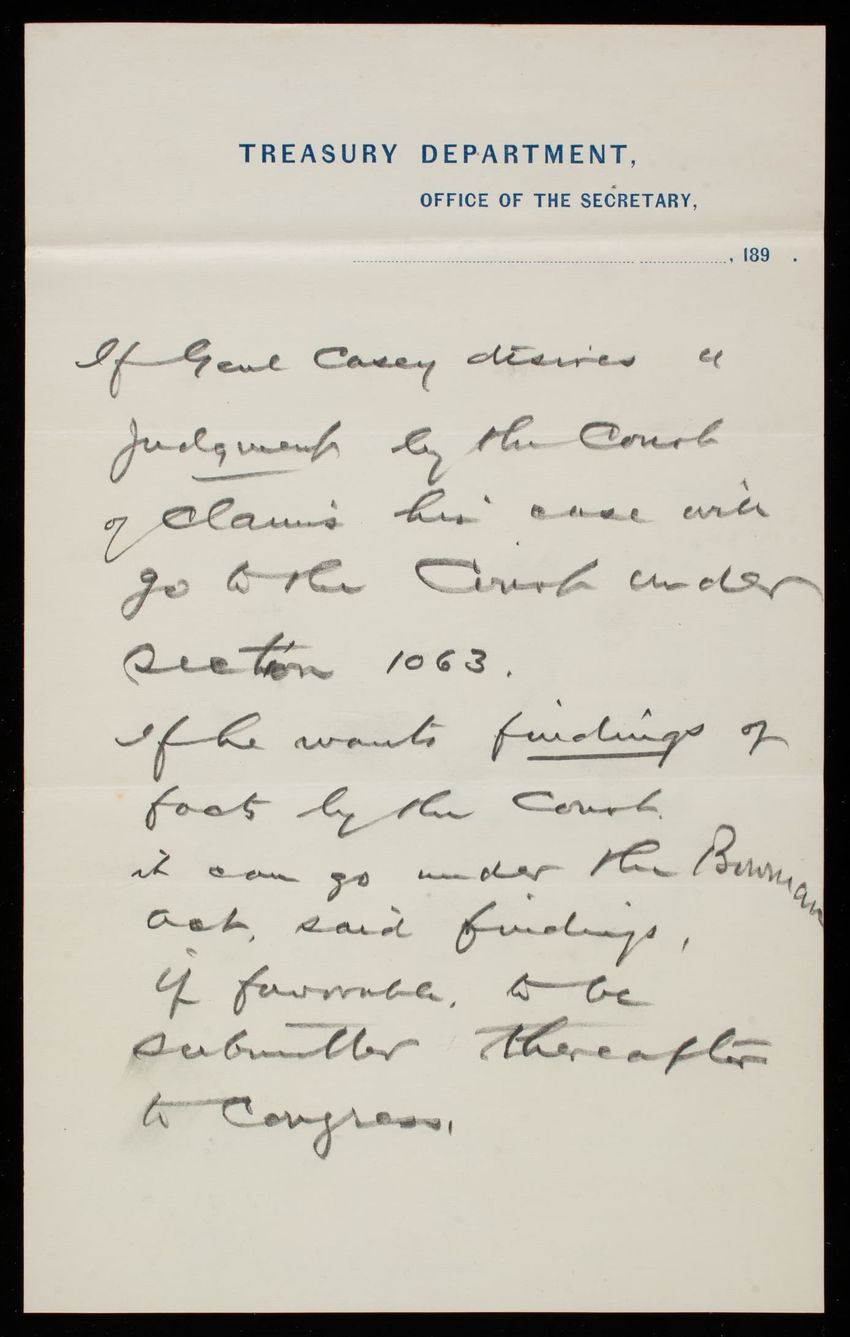 TREASURY DEPARTMENT,
OFFICE OF THE SECRETARY,
, 189 .
If Genl Casey desires a
judgment by the Court
of Claims his case will
go to the Court under
section 1063.
If he wants findings of
facts by the Court
it can go under the Bowman
act, said findings,
if favorable, to be
submitted thereafter
to Congress.